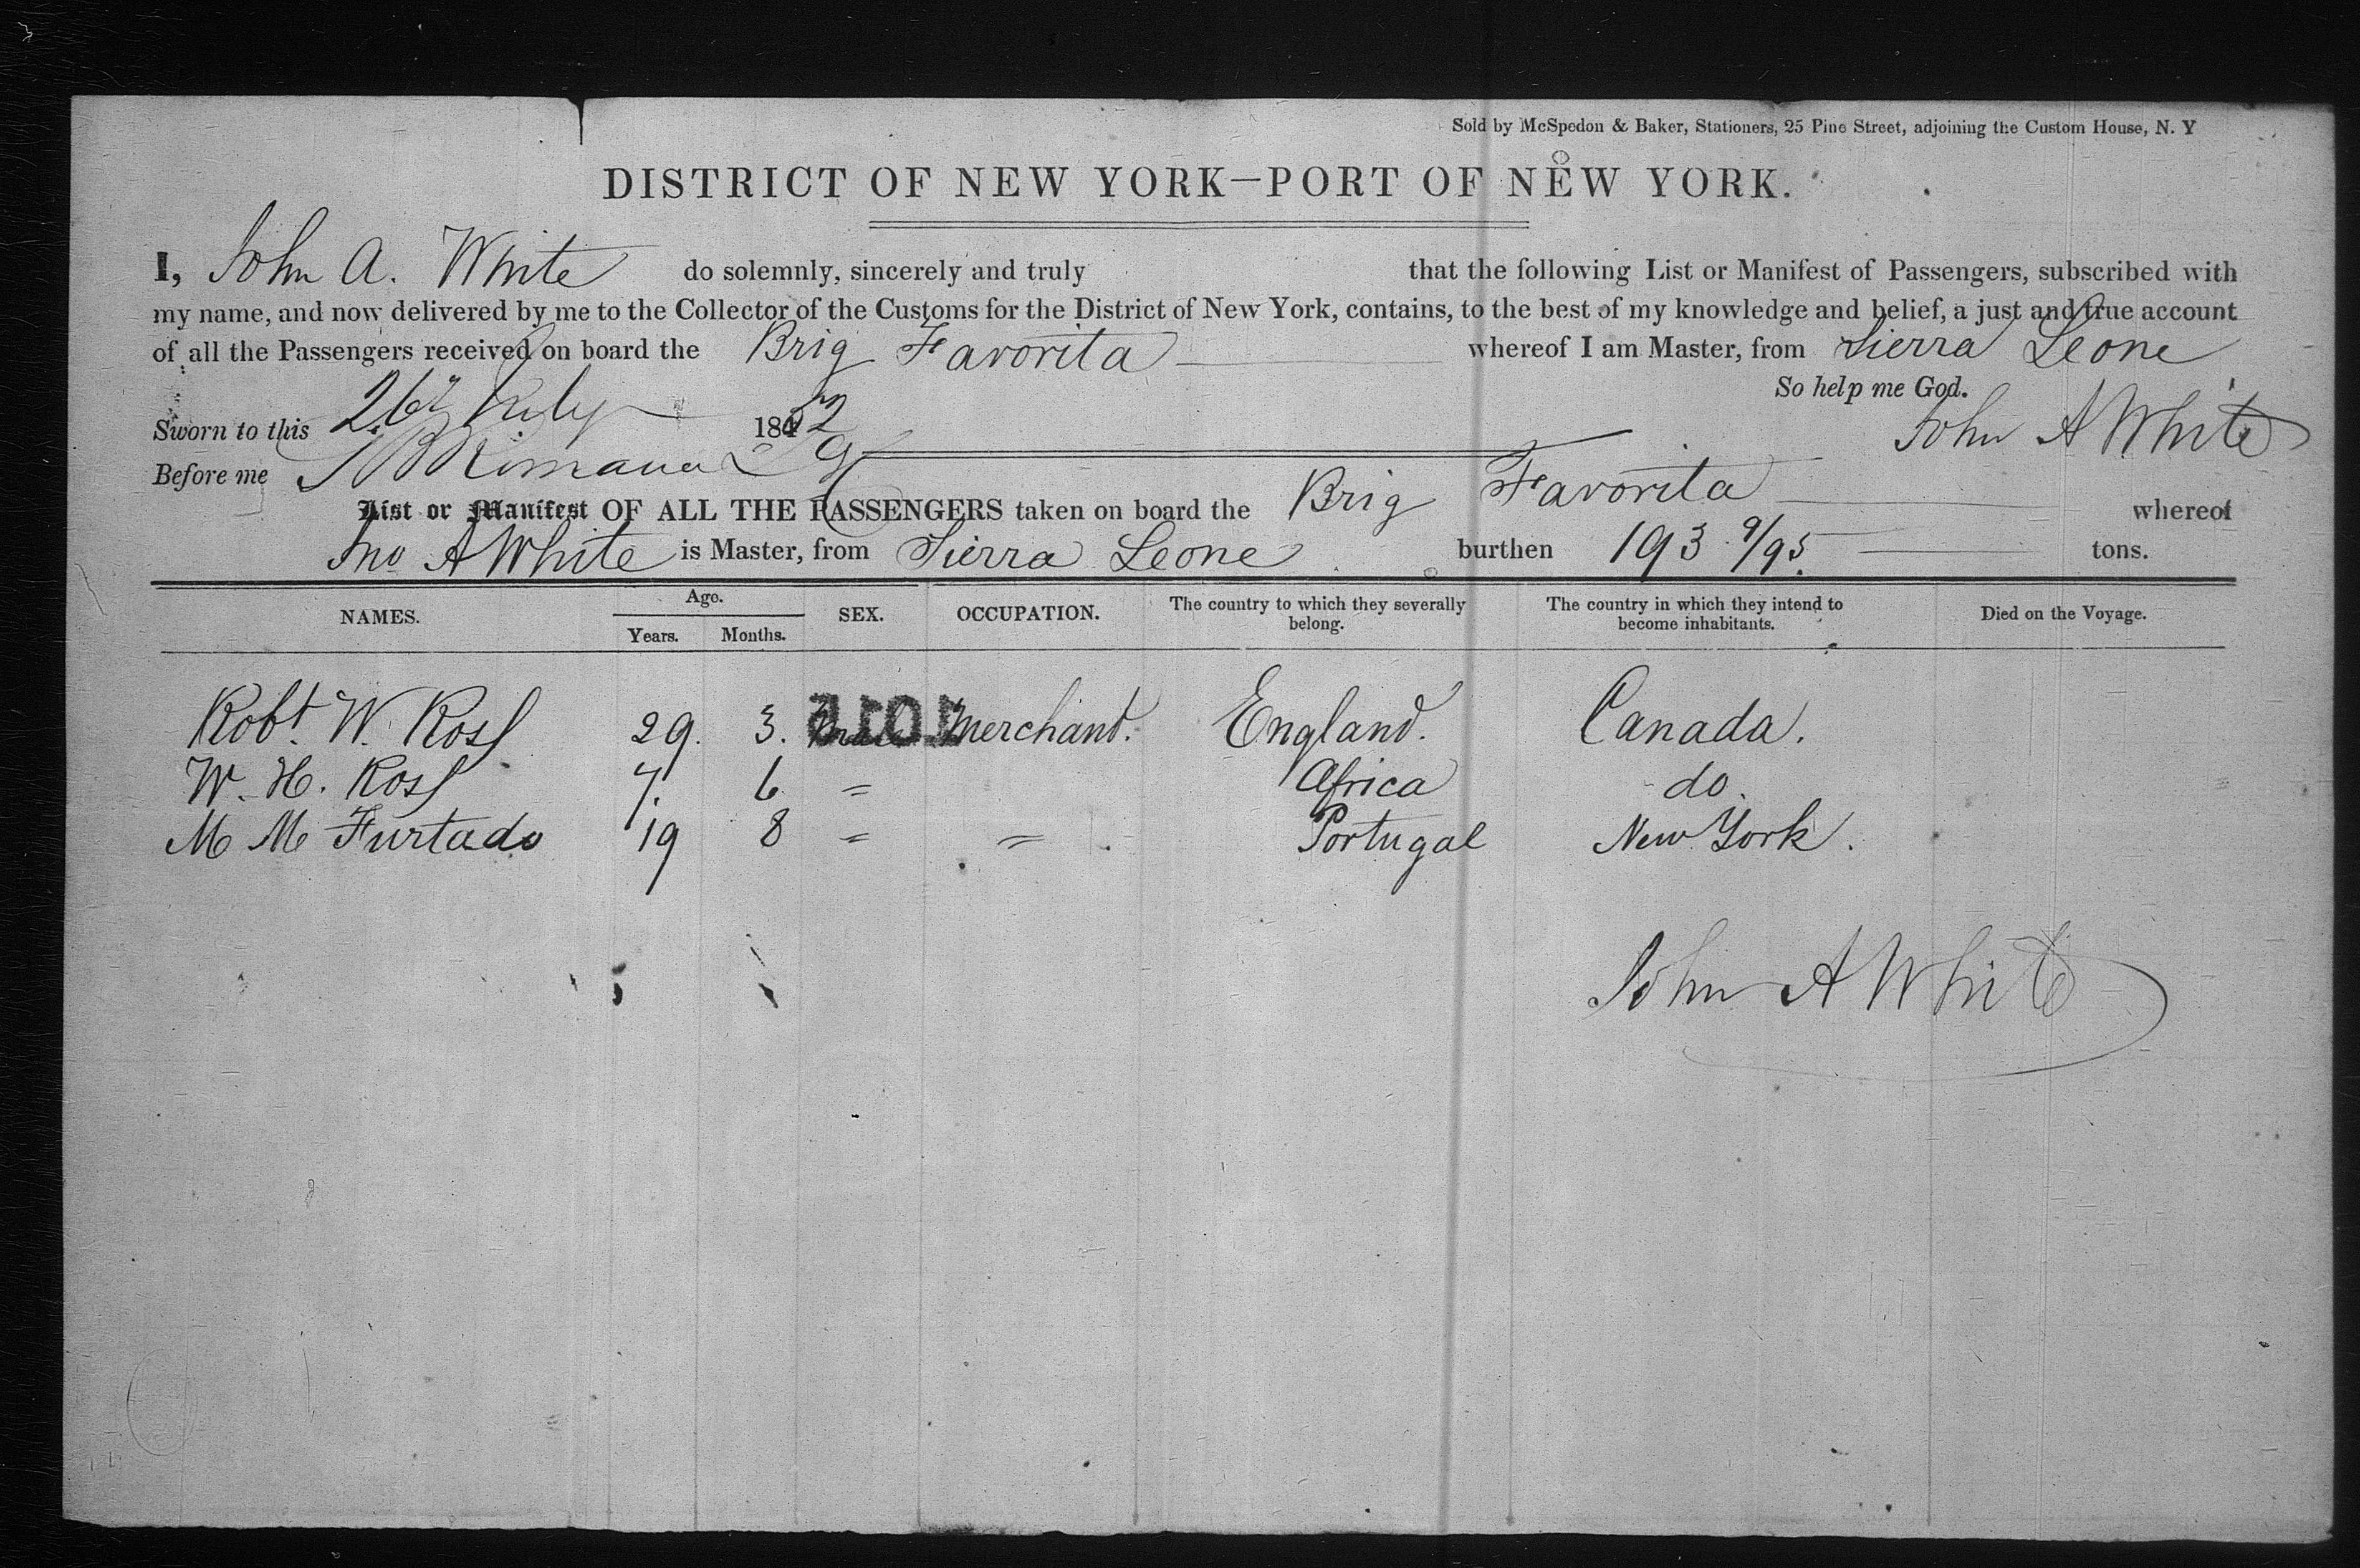 Sold by McSpedon & Baker, Stationers, 25 Pine Street, adjoining the Custom House, N. Y
DISTRICT OF NEW YORK—PORT OF NEW YORK.
I, John A. White do solemnly, sincerely and truly that the following List or Manifest of Passengers, subscribed with
my name, and now delivered by me to the Collector of the Customs for the District of New York, contains, to the best of my knowledge and belief, a just and true account
of all the Passengers received on board the Brig Favorita whereof I am Master, from Sierra Leone
So help me God.
Sworn to this 26th July 1852
John A White
Before me
List or Manifest OF ALL THE PASSENGERS taken on board the Brig Favorita whereof
Jno A White is Master, from Sierra Leone burthen 193 9/95 tons.
NAMES. Age. Years. Months. SEX. OCCUPATION. The country to which they severally belong. The country in which they intend to become inhabitants. Died on the Voyage.
Robt. W. Ross 29. 3. Male Merchant. England. Canada.
W. H. Ross 7. 6 = Africa do.
M M Furtado 19 8 = = Portugal New York.
John A White